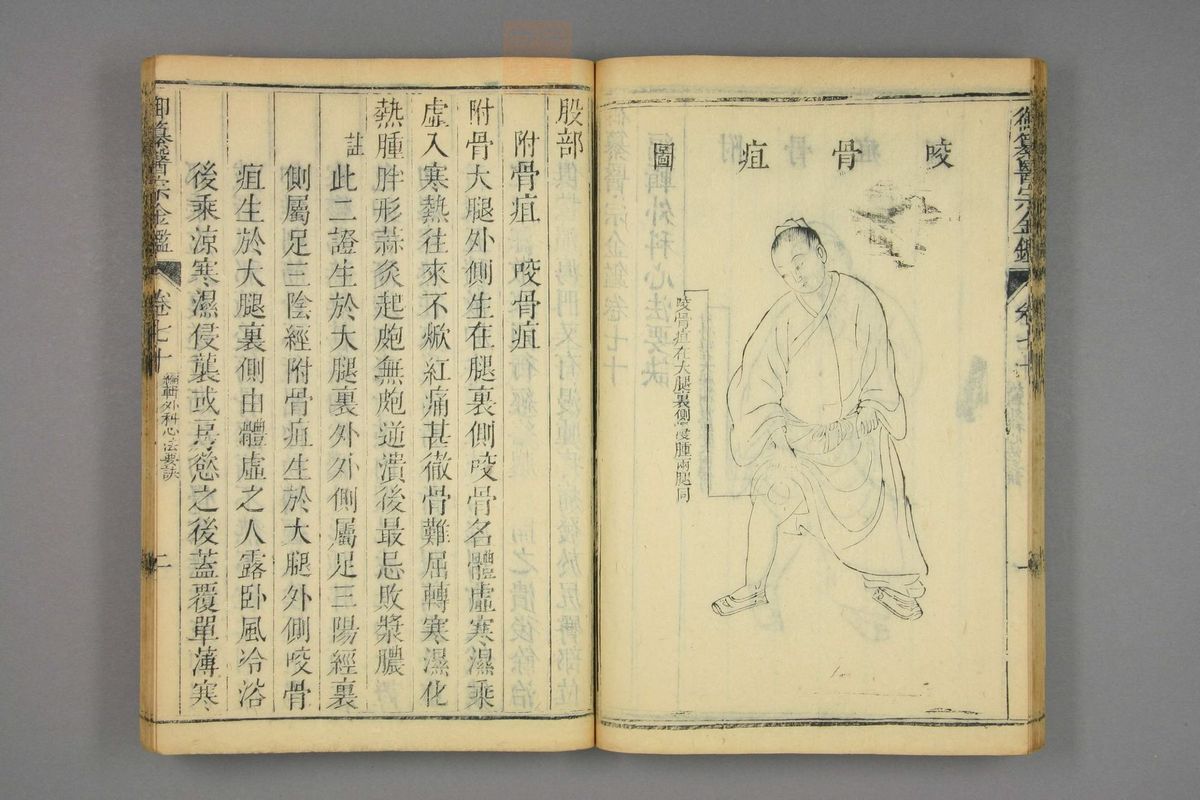 咬骨疽圖
咬骨疽在大腿裏側漫腫兩腿同
御纂醫宗金鑑
卷七十
一
股部
附骨疽 咬骨疽
附骨大腿外側生在腿裏側咬骨名體虛寒濕乘
虛入寒熱往來不焮紅痛甚徹骨難屈轉寒濕化
熱腫胖形蒜灸起皰無皰逆潰後最忌敗漿膿
註
此二證生於大腿裏外外側屬足三陽經裏
側屬足三陰經附骨疽生於大腿外側咬骨
疽生於大腿裏側由體虛之人露卧風冷浴
後乘涼寒濕侵襲或房慾之後蓋覆單薄寒
御纂醫宗金鑑
卷七十
編輯外科心法要訣
二